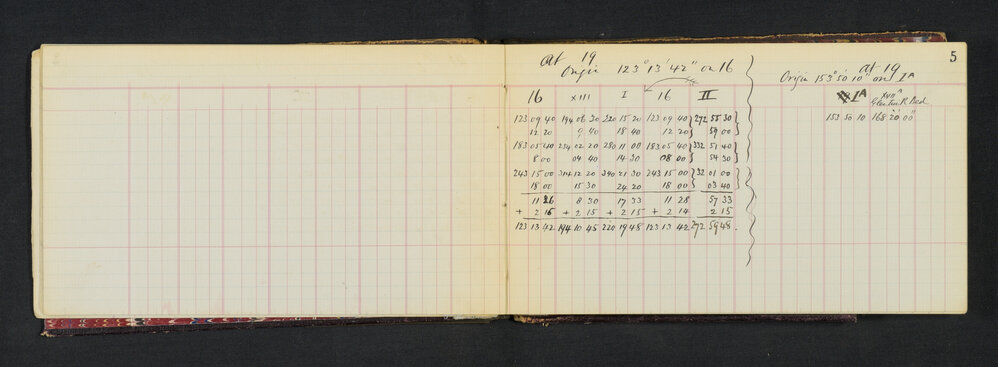 5
At 19
Origin 123° 13' 42" on 16
16 XIII I 16 II
123 09 40 194 06 30 220 15 20 123 09 40 272 55 30
12 20 9 40 18 40 12 20 59 00
183 05 40 254 02 20 280 11 00 183 05 40 332 51 40
8 00 04 40 14 30 08 00 54 30
243 15 00 314 12 20 340 21 30 243 15 00 32 01 00
18 00 15 30 24 20 18 00 03 40
11 26 8 30 17 33 11 28 57 33
+ 2 15 + 2 15 + 2 15 + 2 14 2 15
123 13 42 194 10 45 220 19 48 123 13 42 272 59 48.
At 19
Origin 153° 50' 10" on IA
IA XVII A
Red
153 50 10 168° 20' 00"